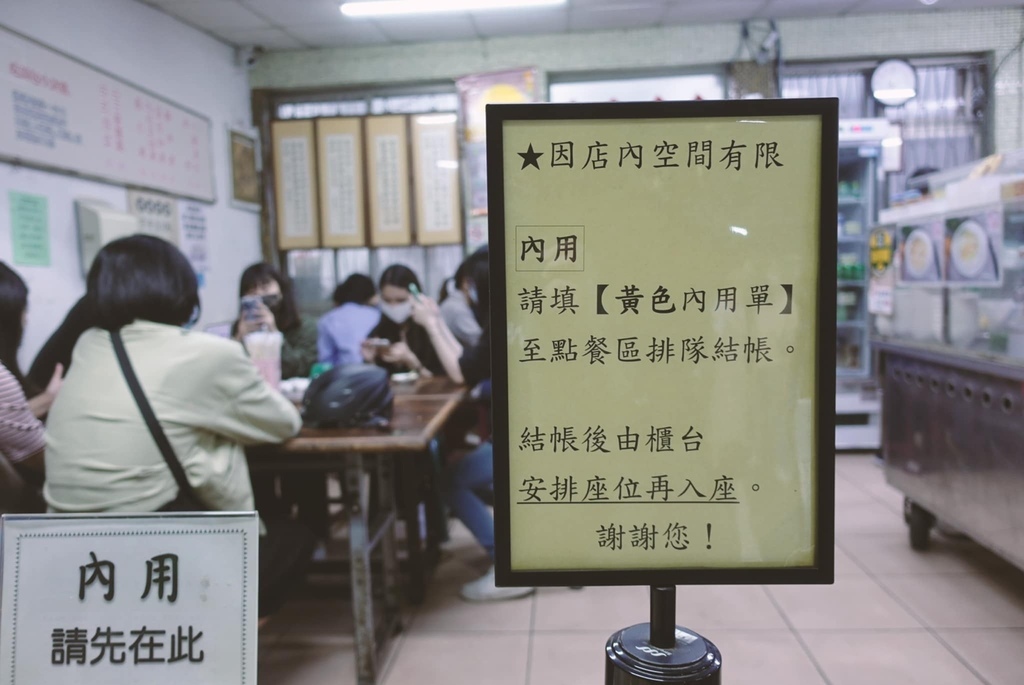 ★因店內空間有限
內用
請填【黃色內用單】
至點餐區排隊結帳。
結帳後由櫃台
安排座位再入座。
謝謝您！
內用
請先在此